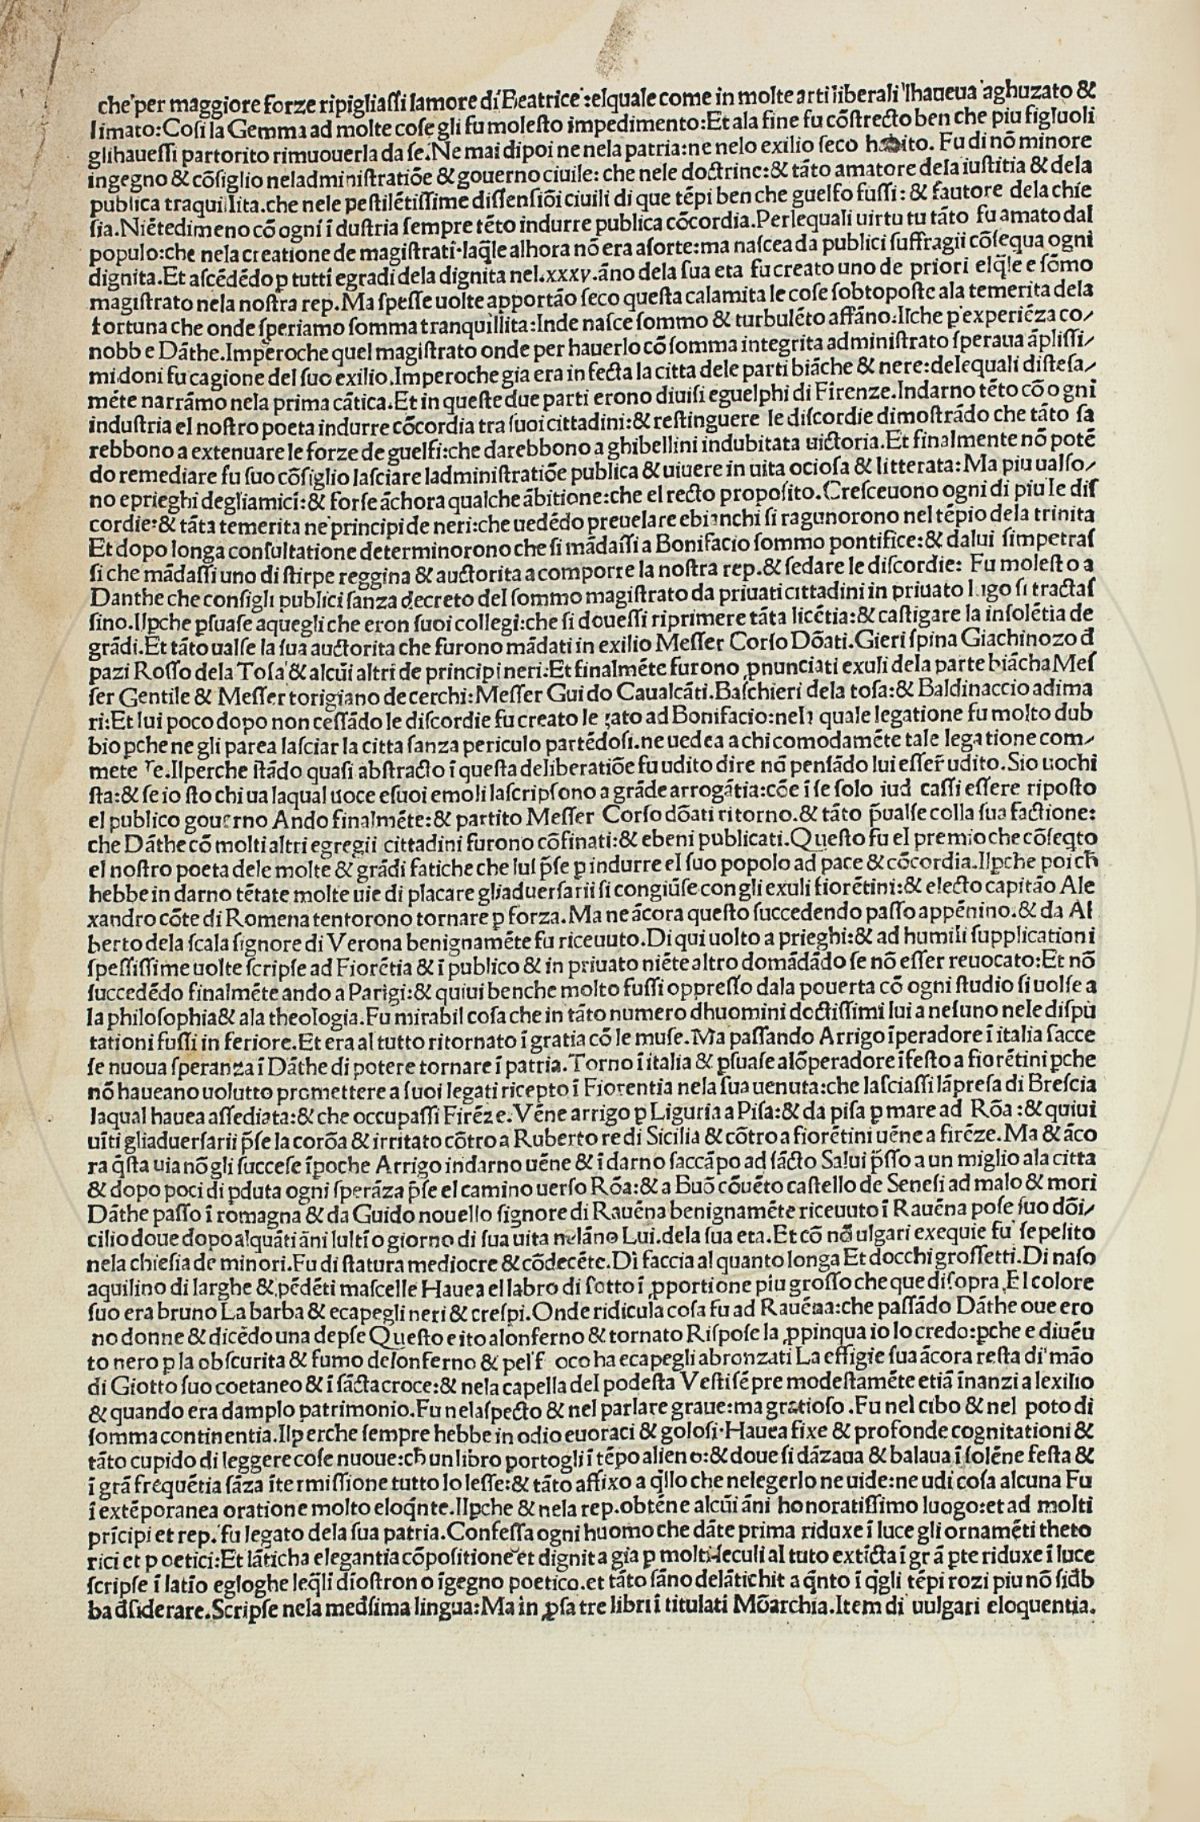 che per maggiore forze ripigliaſſi lamore di Beatrice:elquale come in molte arti liberali lhaueua aghuzato &
limato:Coſi la Gemma ad molte coſe gli fu moleſto impedimento:Et ala fine fu cōſtrecto ben che piu figluoli
glihaueſſi partorito rimuouerla da ſe.Ne mai dipoi ne nela patria:ne nelo exilio ſeco habito. Fu di nō minore
ingegno & cōſiglio neladminiſtratiōe & gouerno ciuile: che nele doctrine:& tāto amatore dela iuſtitia & dela
publica traquillita.che nele peſtilētiſſime diſſenſiōi ciuili di que tēpi ben che guelfo fuſſi: & fautore dela chie
ſia.Niētedimeno cō ogni ī duſtria ſempre tēto indurre publica cōcordia.Perlequali uirtu tu tāto fu amato dal
populo:che nela creatione de magiſtrati.laq̄le alhora nō era aſorte:ma naſcea da publici ſuffragii cōſequa ogni
dignita.Et aſcēdēdo p tutti egradi dela dignita nel.xxxv.āno dela ſua eta fu creato uno de priori elq̄le e ſōmo
magiſtrato nela noſtra rep.Ma ſpeſſe uolte apportāo ſeco queſta calamita le coſe ſobtopoſte ala temerita dela
fortuna che onde ſperiamo ſomma tranquillita:Inde naſce ſommo & turbulēto affāno.Ilche p experiēza co/
nobbe Dāthe.Imperoche quel magiſtrato onde per hauerlo cō ſomma integrita adminiſtrato ſperaua āpliſſi/
mi doni fu cagione del ſuo exilio.Imperoche gia era infecta la citta dele parti biāche & nere:delequali diſteſa/
mēte narrāmo nela prima cātica.Et in queſte due parti erono diuiſi eguelphi di Firenze.Indarno tēto cō ogni
induſtria el noſtro poeta indurre cōcordia tra ſuoi cittadini:& reſtinguere le diſcordie dimoſtrādo che tāto ſa
rebbono a extenuare le forze de guelfi:che darebbono a ghibellini indubitata uictoria.Et finalmente nō potē
do remediare fu ſuo cōſiglio laſciare ladminiſtratiōe publica & uiuere in uita ocioſa & litterata:Ma piu ualſo/
no eprieghi degliamici:& forſe āchora qualche ābitione:che el recto propoſito.Creſceuono ogni di piu le diſ
cordie:& tāta temerita ne principi de neri:che uedēdo preuelare ebianchi ſi ragunorono nel tēpio dela trinita
Et dopo longa conſultatione determinorono che ſi mādaſſi a Bonifacio ſommo pontifice:& dalui ſimpetraſ
ſi che mādaſſi uno di ſtirpe reggina & auctorita a comporre la noſtra rep.& ſedare le diſcordie: Fu moleſto a
Danthe che conſigli publici ſanza decreto del ſommo magiſtrato da priuati cittadini in priuato lugo ſi tractaſ
ſino.Ilpche pſuaſe aquegli che eron ſuoi collegi:che ſi doueſſi riprimere tāta licētia:& caſtigare la inſolētia de
grādi.Et tāto ualſe la ſua auctorita che furono mādati in exilio Meſſer Corſo Dōati.Gieri ſpina Giachinozo đ
pazi Roſſo dela Toſa & alcūi altri de principi neri:Et finalmēte furono ꝓnunciati exuli dela parte biācha Meſ
ſer Gentile & Meſſer torigiano de cerchi:Meſſer Guido Caualcāti.Baſchieri dela toſa:& Baldinaccio adima
ri:Et lui poco dopo non ceſſādo le diſcordie fu creato legato ad Bonifacio:nela quale legatione fu molto dub
bio pche ne gli parea laſciar la citta ſanza periculo partēdoſi.ne uedea a chi comodamēte tale legatione com/
mete re.Ilperche ſtādo quaſi abſtracto ī queſta deliberatiōe fu udito dire nō penſādo lui eſſer̄ udito.Sio uo chi
ſta:& ſe io ſto chi ua laqual uoce eſuoi emoli laſcripſono a grāde arrogātia:cōe ī ſe ſolo iud caſſi eſſere ripoſto
el publico gouerno Ando finalmēte:& partito Meſſer Corſo dōati ritorno.& tāto p̄ualſe colla ſua factione:
che Dāthe cō molti altri egregii cittadini furono cōfinati:& ebeni publicati.Queſto fu el premio che cōſeqto
el noſtro poeta dele molte & grādi fatiche che lui p̄ſe p indurre el ſuo popolo ad pace & cōcordia.Ilpche poi cħ
hebbe in darno tētate molte uie di placare gliaduerſarii ſi congiūſe con gli exuli fiorētini:& electo capitāo Ale
xandro cōte di Romena tentorono tornare p forza.Ma ne ācora queſto ſuccedendo paſſo appēnino.& da Al
berto dela ſcala ſignore di Verona benignamēte fu riceuuto.Di qui uolto a prieghi:& ad humili ſupplicationi
ſpeſſiſſime uolte ſcripſe ad Fiorētia & ī publico & in priuato niēte altro domādādo ſe nō eſſer reuocato:Et nō
ſuccedēdo finalmēte ando a Parigi:& quiui benche molto fuſſi oppreſſo dala pouerta cō ogni ſtudio ſi uolſe a
la philoſophia & ala theologia.Fu mirabil coſa che in tāto numero dhuomini doctiſſimi lui a neſuno nele diſpu
tationi fuſſi inferiore.Et era al tutto ritornato ī gratia cō le muſe.Ma paſſando Arrigo īperadore ī italia facce
ſe nuoua ſperanza ī Dāthe di potere tornare ī patria.Torno ī italia & pſuaſe alōperadore īfeſto a fiorētini pche
nō haueano uolutto promettere a ſuoi legati ricepto ī Fiorentia nela ſua uenuta:che laſciaſſi lāpreſa di Breſcia
laqual hauea aſſediata:& che occupaſſi Firēze.Vēne arrigo p Liguria a Piſa:& da piſa p mare ad Rōa:& quiui
uīti gliaduerſarii p̄ſe la corōa & irritato cōtro a Ruberto re di Sicilia & cōtro a fiorētini uēne a firēze.Ma & āco
ra q̄ſta uia nō gli ſucceſe īpoche Arrigo indarno uēne & ī darno ſaccāpo ad ſācto Salui p̄ſſo a un miglio ala citta
& dopo poci di pduta ogni ſperāza p̄ſe el camino uerſo Rōa:& a Buō cōuēto caſtello de Seneſi ad malo & mori
Dāthe paſſo ī romagna & da Guido nouello ſignore di Rauēna benignamēte riceuuto ī Rauēna poſe ſuo dōi/
cilio doue dopo alquāti āni lultīo giorno di ſua uita nelāno Lui.dela ſua eta.Et cō nō uulgari exequie fu ſepelito
nela chieſia de minori.Fu di ſtatura mediocre & cōdecēte.Di faccia al quanto longa Et docchi groſſetti.Di naſo
aquilino di larghe & pēdēti maſcelle Hauea el labro di ſotto ī ꝓportione piu groſſo che que diſopra.El colore
ſuo era bruno La barba & ecapegli neri & creſpi.Onde ridicula coſa fu ad Rauēna:che paſſādo Dāthe oue ero
no donne & dicēdo una depſe Queſto e ito alonferno & tornato Riſpoſe la ꝓpinqua io lo credo:pche e diuēu
to nero p la obſcurita & fumo delonferno & pel foco ha ecapegli abronzati La effigie ſua ācora reſta di māo
di Giotto ſuo coetaneo & ī ſācta croce:& nela capella del podeſta Veſti ſēpre modeſtamēte etiā īnanzi a lexilio
& quando era damplo patrimonio.Fu nelaſpecto & nel parlare graue:ma gratioſo.Fu nel cibo & nel poto di
ſomma continentia.Ilperche ſempre hebbe in odio euoraci & goloſi.Hauea fixe & profonde cognitationi &
tāto cupido di leggere coſe nuoue:cħ un libro portogli ī tēpo alieno:& doue ſi dāzaua & balaua ī ſolēne feſta &
ī grā frequētia ſāza ītermiſſione tutto lo leſſe:& tāto affixo a q̄llo che nelegerlo ne uide:ne udi coſa alcuna Fu
ī extēporanea oratione molto eloq̄nte.Ilpche & nela rep.obtēne alcūi āni honoratiſſimo luogo:et ad molti
prīcipi et rep. fu legato dela ſua patria.Confeſſa ogni huomo che dāte prima riduxe ī luce gli ornamēti theto
rici et poetici:Et lāticha elegantia cōpoſitione et dignita gia p molti ſeculi al tuto extīcta ī grā pte riduxe ī luce
ſcripſe ī latīo egloghe leq̄li dīoſtrono īgegno poetico.et tāto ſāno delātichita quāto ī q̄gli tēpi rozi piu nō ſidb
ba dſiderare.Scripſe nela medſima lingua:Ma in ꝓſa tre libri ī titulati Mōarchia.Item di uulgari eloquentia.